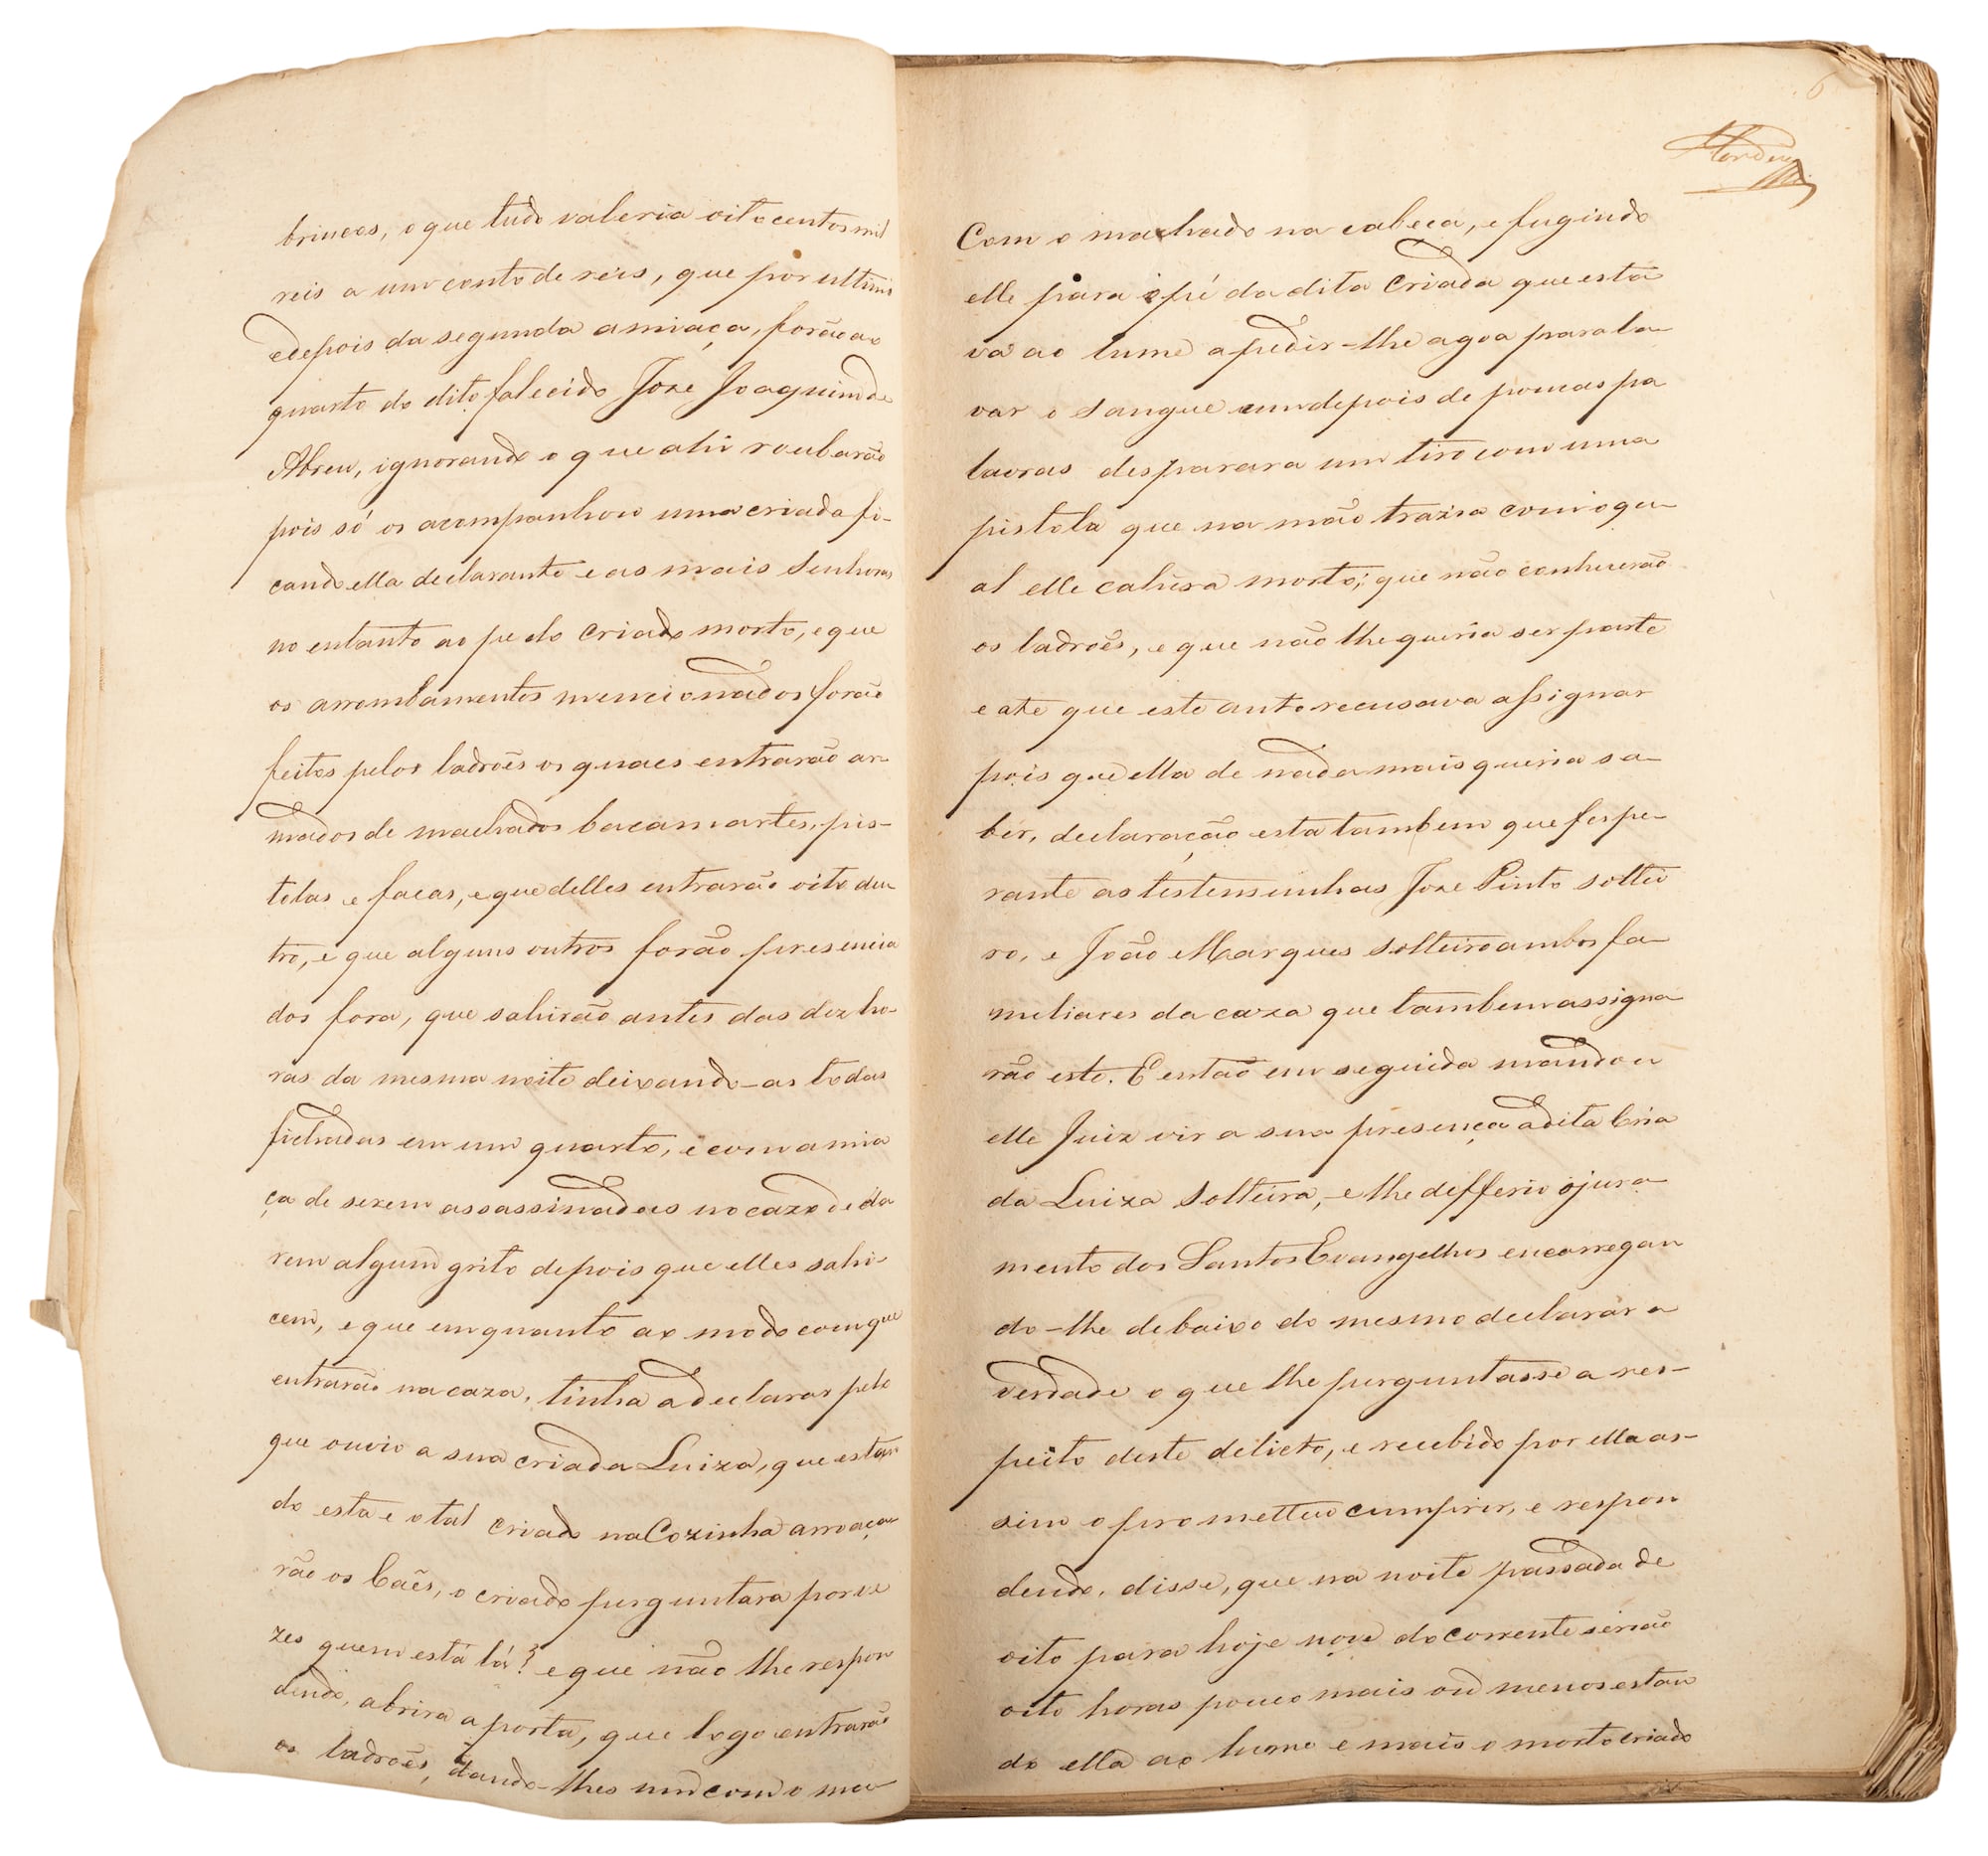 brincos, o que tudo valeria oito centos mil
reis a um conto de reis, que por ultimo
edepois da segunda amiaça, forão ao
quarto do dito falecido Joze Joaquim de
Abreu, ignorando o que ahi roubarão
pois só os acompanhou uma criada fi-
cando ella declarante e as mais Senhoras
no entanto ao pe do criado morto, e que
os arrombamentos mencionados forão
feitos pelos ladroẽs os quaes entrarão ar
mados de machados bacamartes, pis-
tolas e facas, e que delles entrarão oito den
tro, e que alguns outros forão presencia
dos fora, que sahirão antes das dez ho-
ras da mesma noite deixando-as todas
fichadas em um quarto, e com amia
ça de serem assassinadas no cazo de da
rem algum grito depois que elles sahi-
cem, e que emquanto ao modo com que
entrarão na caza, tinha a declarar pelo
que ouvio a sua criada Luiza, que estan
do esta e o tal criado na Cozinha arroaça
rão os Caẽs, o criado perguntara por ve
zes quem está lá? e que não lhe respon
dendo, abrira a porta, que logo entrarão
os ladroẽs, dando-lhes um com o ma
6
Com o machado na cabeca, e fugindo
elle para o pé da dita Criada que esta
va ao lume a pedir-lhe agoa para la-
var o Sangue um depois de poucas pa
lavras desparara um tiro com uma
pistola que na mão trazia com o qu-
al elle cahira morto; que não conhecerão
os ladroẽs, e que não lhe queria ser parte
e ate que este auto recusava assignar
pois que ella de nada mais queria sa-
ber, declaração esta tambem que fes pe-
rante as testemunhas Joze Pinto soltei
ro, e João Marques solteiro ambos fa-
meliares da caza que tambem assigna
rão este. E então em seguida mandou
elle Juiz vir a sua presença a dita Cria
da Luiza Solteira, e lhe defferio o jura-
mento dos Santos Evangelhos encarregan
do-lhe debaixo do mesmo declarar a
verdade o que lhe perguntasse a res-
peito deste delicto, e recebido por ella as-
sim o prometteu cumprir, e respon
dendo, disse, que na noite passada de
oito para hoje nove do corrente serião
oito horas pouco mais ou menos estan
do ella ao lume e mais o morto criado